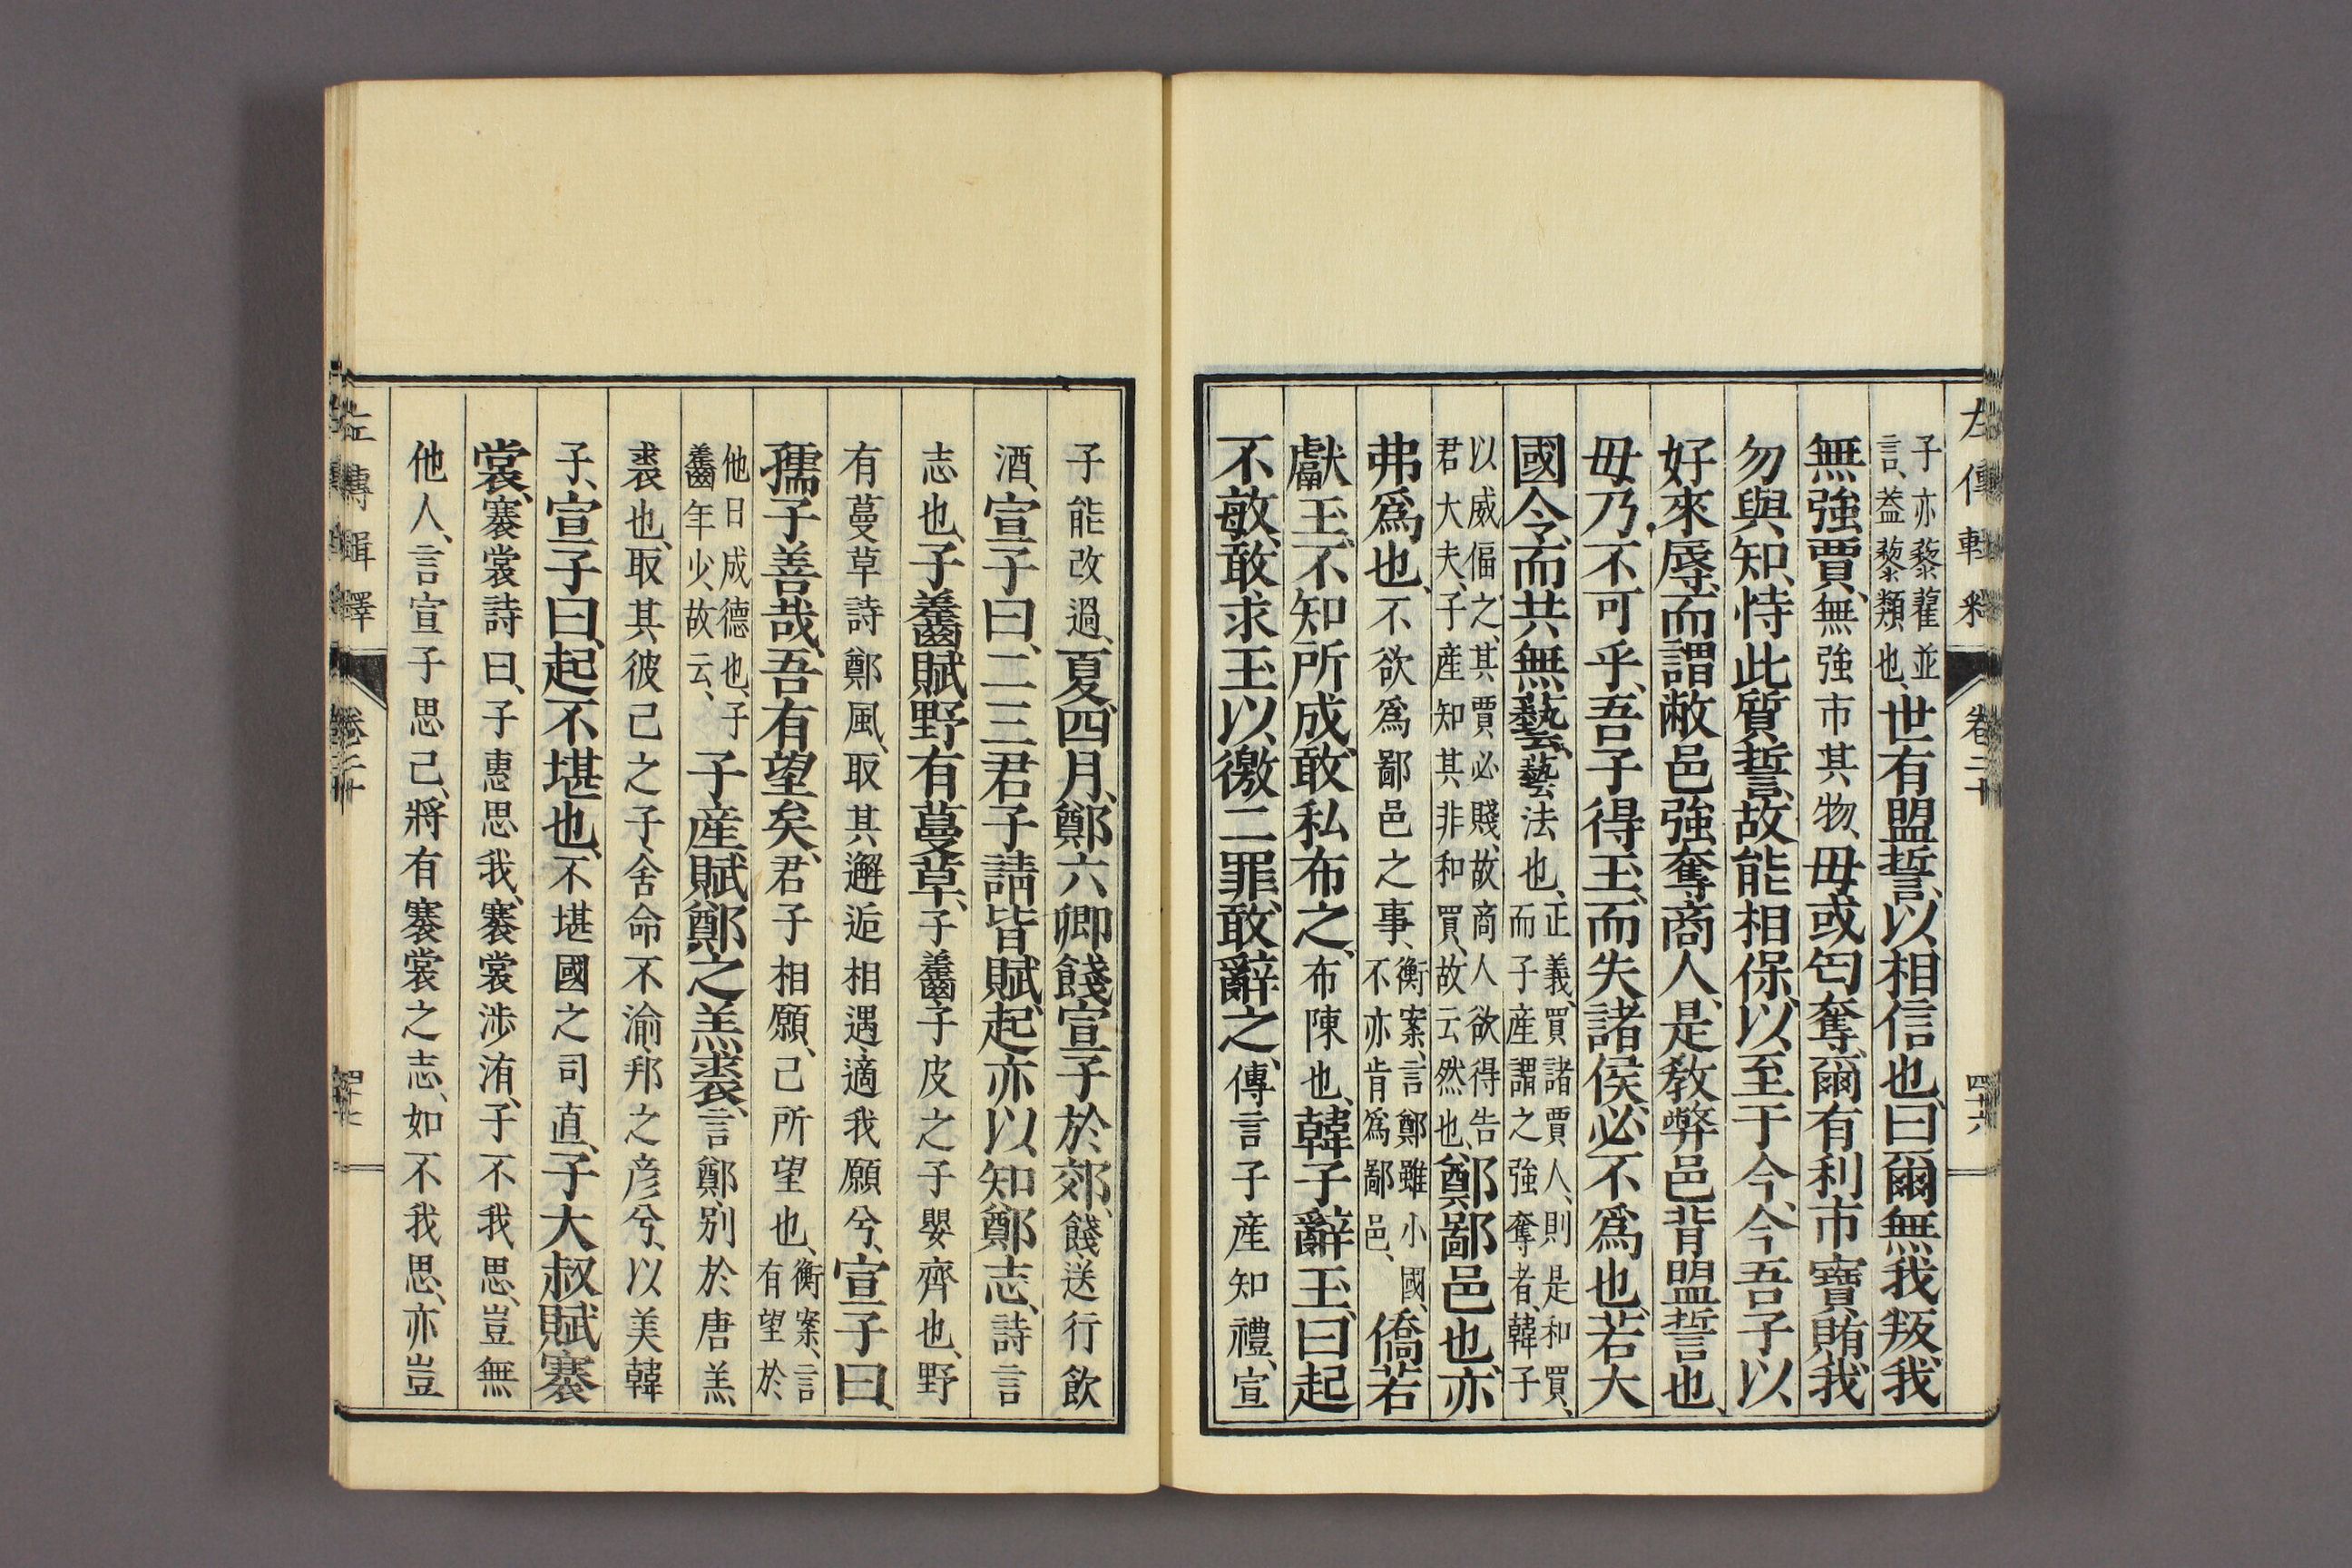 左傳輯釋 卷二十 四十六
子亦藜藿並言、葢藜類也、世有盟誓、以相信也、曰爾無我叛、我
無強賈、無強市其物、毋或匄奪、爾有利市寶賄、我
勿與知、恃此質誓、故能相保、以至于今、今吾子以
好來辱、而謂敝邑強奪商人、是敎弊邑背盟誓也、
毋乃不可乎、吾子得玉、而失諸侯、必不爲也、若大
國令、而共無藝、藝法也、正義、買諸賈人、則是和買、而子產謂之強奪者、韓子
以威偪之、其賈必賤、故商人欲得告君大夫、子產知其非和買、故云然也、鄭鄙邑也、亦
弗爲也、不欲爲鄙邑之事、衡案、言鄭雖小國、不亦肯爲鄙邑、僑若
獻玉、不知所成、敢私布之、布陳也、韓子辭玉、曰起
不敏、敢求玉以徼二罪、敢辭之、傳言子產知禮、宣
子能改過、夏四月、鄭六卿餞宣子於郊、餞送行飮
酒、宣子曰、二三君子請皆賦、起亦以知鄭志、詩言
志也、子齹賦野有蔓草、子齹子皮之子嬰齊也、野
有蔓草詩鄭風、取其邂逅相遇、適我願兮、宣子曰、
孺子善哉、吾有望矣、君子相願、己所望也、衡案、言有望於
他日成德也、子齹年少、故云、子產賦鄭之羔裘、言鄭、別於唐羔
裘也、取其彼己之子、舍命不渝、邦之彦兮、以美韓
子、宣子曰、起不堪也、不堪國之司直、子大叔賦褰
裳、褰裳詩曰、子惠思我、褰裳涉洧、子不我思、豈無
他人、言宣子思己、將有褰裳之志、如不我思、亦豈
左傳輯釋 卷二十 四十七